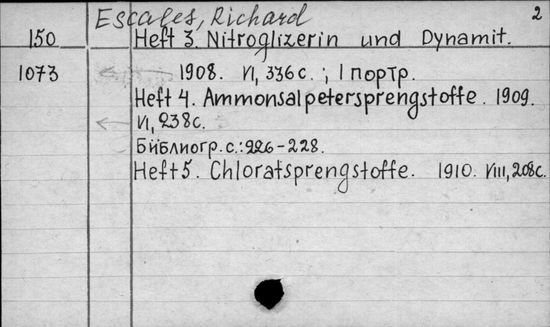 Escales, Richard 2
150 Heft 3. Nitroglizerin und Dynamit.
1073 1908. VI, 336 с. ; 1 портр.
Heft 4. Ammonsalpetersprengstoffe. 1909.
VI, 238 с.
Библиогр. с.: 226-228.
Heft 5. Chloratsprengstoffe. 1910. VIII, 208 с.